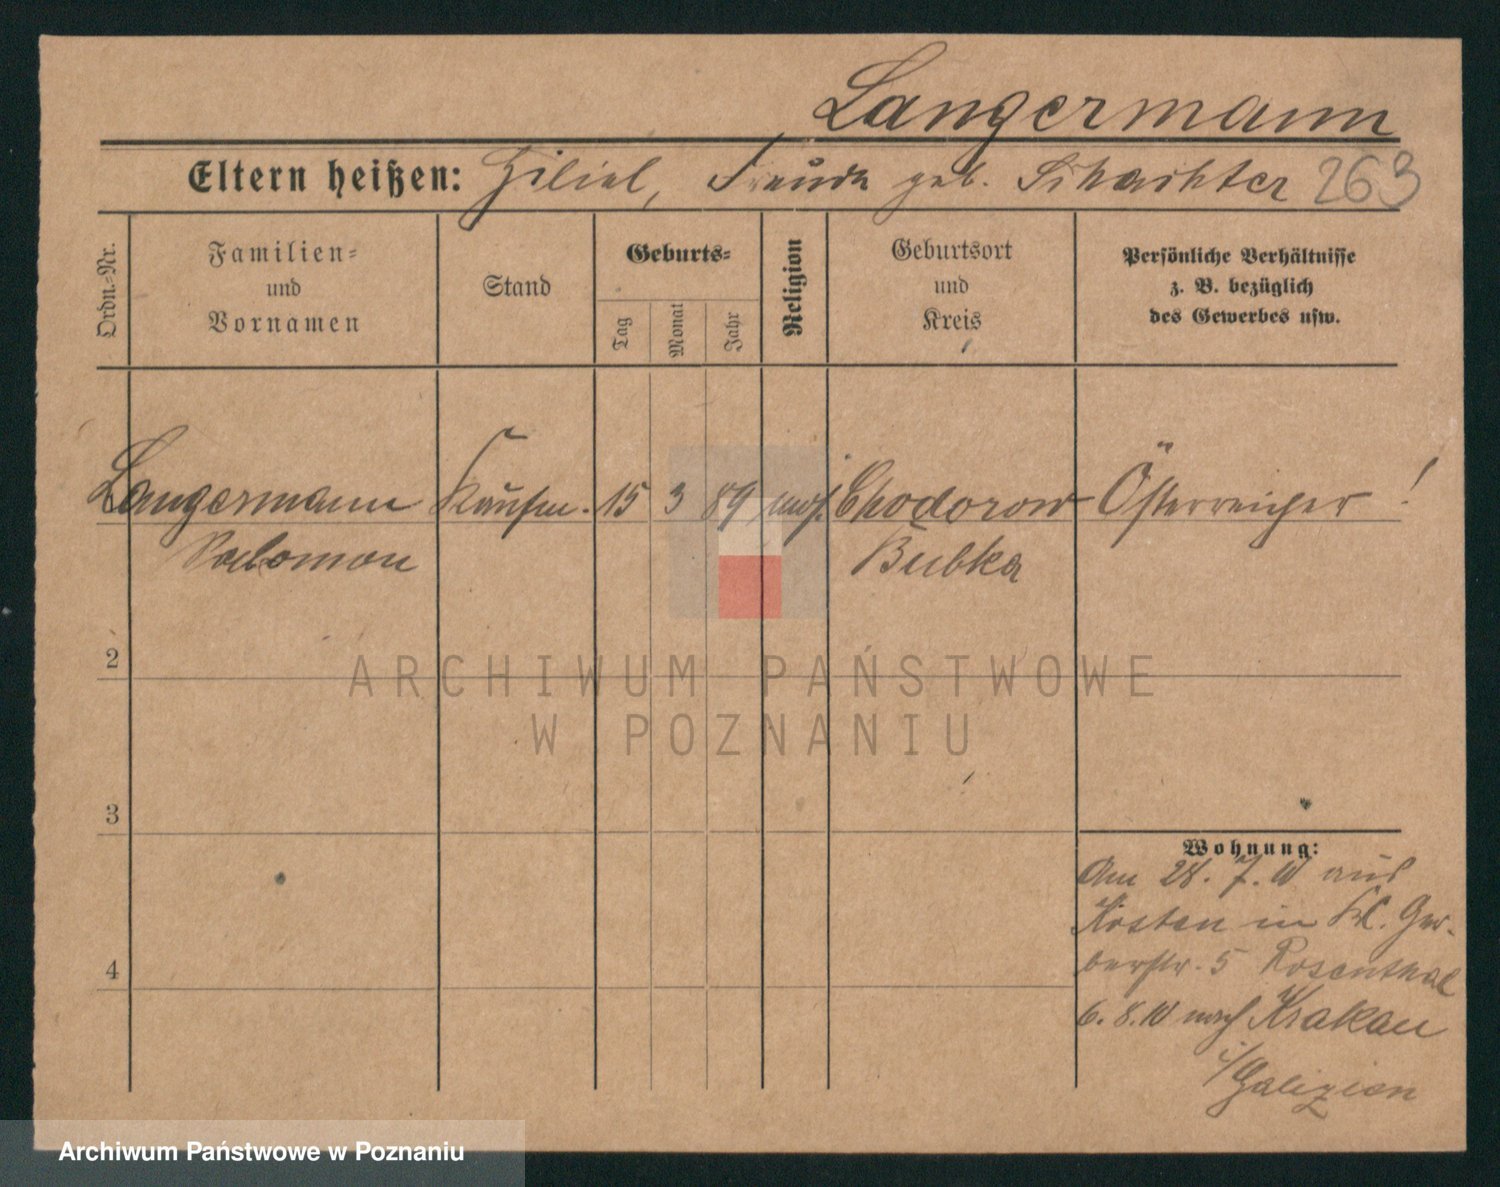 Langermann
Eltern heißen: Hiliel, Freude geb. Schachter 263
Ordn.-Nr.
Familien-
und
Vornamen
Stand
Geburts-
Tag
Monat
Jahr
Religion
Geburtsort
und
Kreis
Persönliche Verhältnisse
z. B. bezüglich
des Gewerbes usw.
Langermann Kaufm. 15 3 89 mos. Chodorow Österreicher!
Salomon Bubka
2
ARCHIWUM PAŃSTWOWE
W POZNANIU
3
Wohnung:
Am 28. 7. 10 aus
Kosten in Kl. Ger-
berstr. 5 Rosenthal
4
6. 8. 10 nach Krakau
i/Galizien
Archiwum Państwowe w Poznaniu